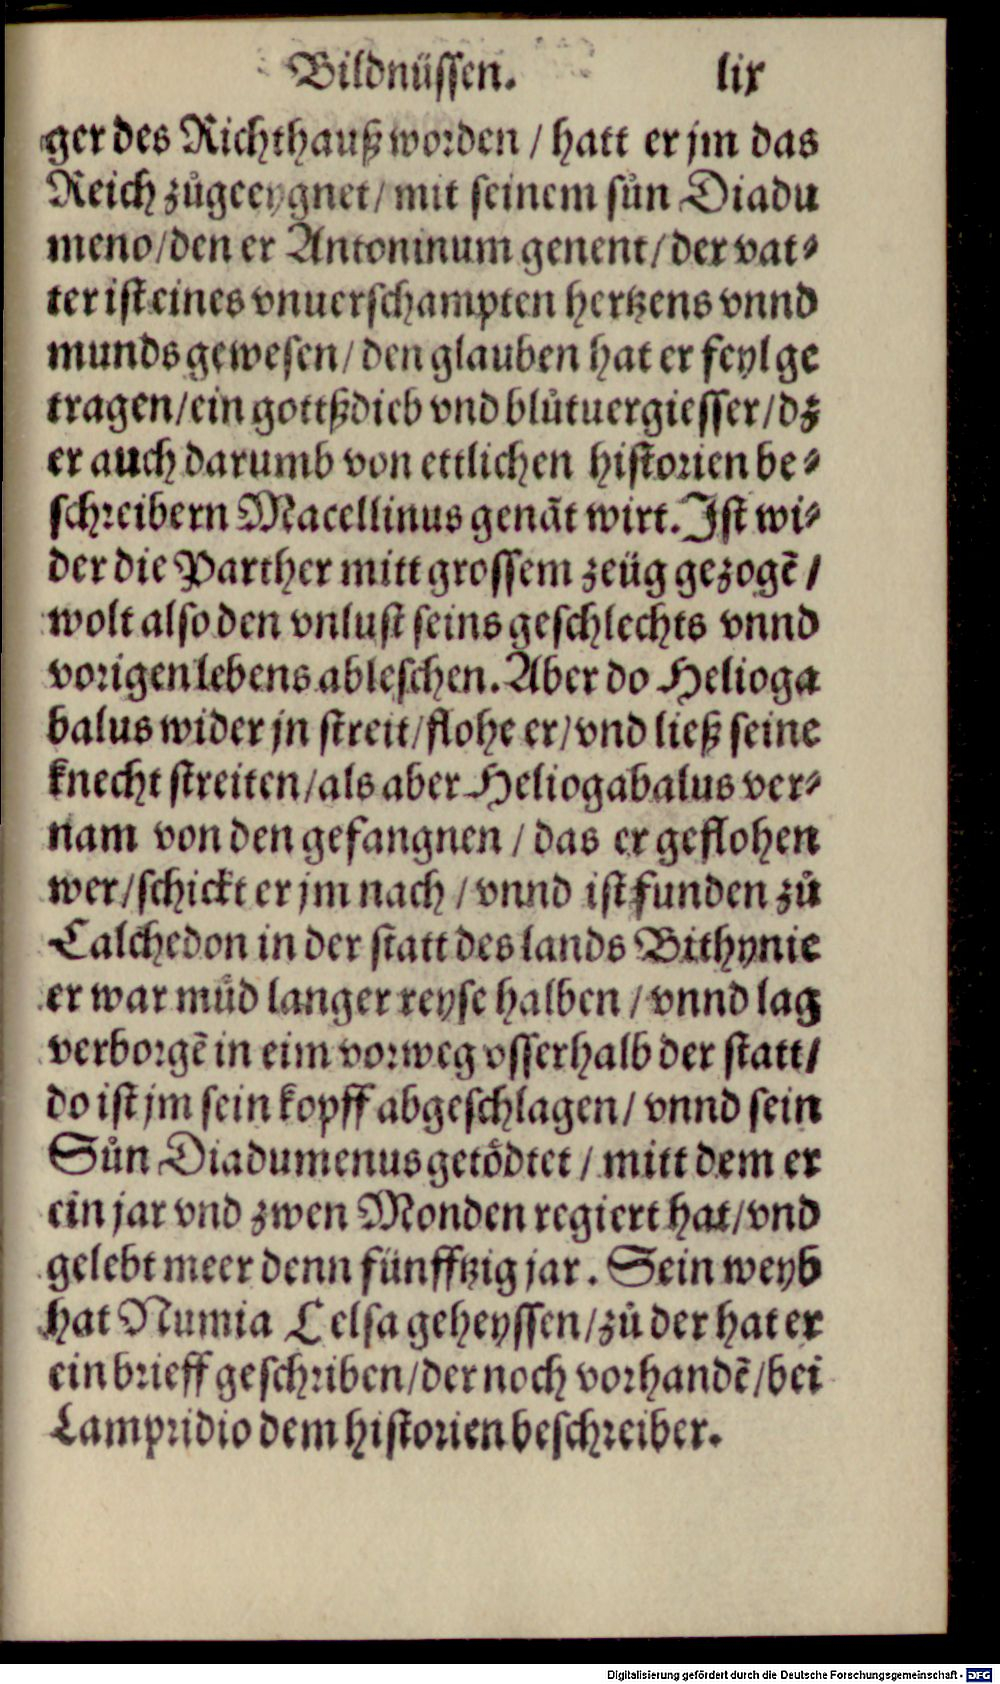 Bildnüssen. lix
ger des Richthauß worden / hatt er jm das
Reich zůgeeygnet / mit seinem sůn Diadu
meno / den er Antoninum genent / der vat⸗
ter ist eines vnuerschampten hertzens vnnd
munds gewesen / den glauben hat er feyl ge
tragen / ein gottßdieb vnd blůtuergiesser / dz
er auch darumb von ettlichen historien be⸗
schreibern Macellinus genãt wirt. Ist wi⸗
der die Parther mitt grossem zeüg gezogẽ /
wolt also den vnlust seins geschlechts vnnd
vorigen lebens ableschen. Aber do Helioga
balus wider jn streit / flohe er / vnd ließ seine
knecht streiten / als aber Heliogabalus ver⸗
nam von den gefangnen / das er geflohen
wer / schickt er jm nach / vnnd ist funden zů
Calchedon in der statt des lands Bithynie
er war můd langer reyse halben / vnnd lag
verborgẽ in eim vorweg vsserhalb der statt /
do ist jm sein kopff abgeschlagen / vnnd sein
Sůn Diadumenus getödtet / mitt dem er
ein jar vnd zwen Monden regiert hat / vnd
gelebt meer denn fünfftzig jar. Sein weyb
hat Numia Celsa geheyssen / zů der hat er
ein brieff geschriben / der noch vorhandẽ / bei
Lampridio dem historien beschreiber.
Digitalisierung gefördert durch die Deutsche Forschungsgemeinschaft - DFG